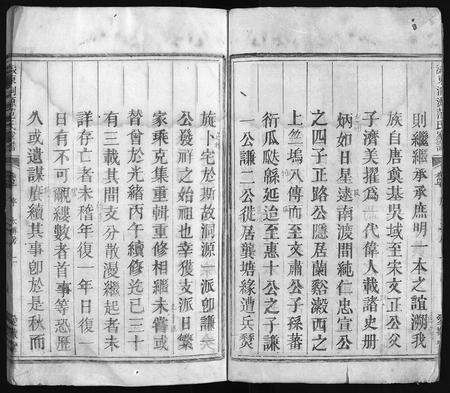 則繼繼承承庶明一本之誼溯我
族自唐奠基吳域至宋文正公父
子濟美擢為一代偉人載諸史册
炳如日星逮南渡間純仁忠宣公
之四子正路公隱居蘭谿瀫西之
上竺塢八傳而至文肅公子孫蕃
衍瓜瓞緜延迨至惠十公之子謙
一公謙二公徙居龔塘緣遭兵燹
旋卜宅於斯故洞源一派卽謙一
公發祥之始祖也幸獲支派日繁
家乘克集重輯重修相繼未嘗或
替曾於光緒丙午續修迄已三十
有三載其間支分散漫繼起者未
詳存亡者未稽年復一年日復一
日有不可覼縷數者首事等恐歷
久或遺謀賡續其事卽於是秋而